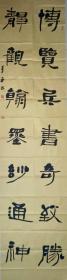 博覽兵書奇致勝
靜觀翰墨玅通神